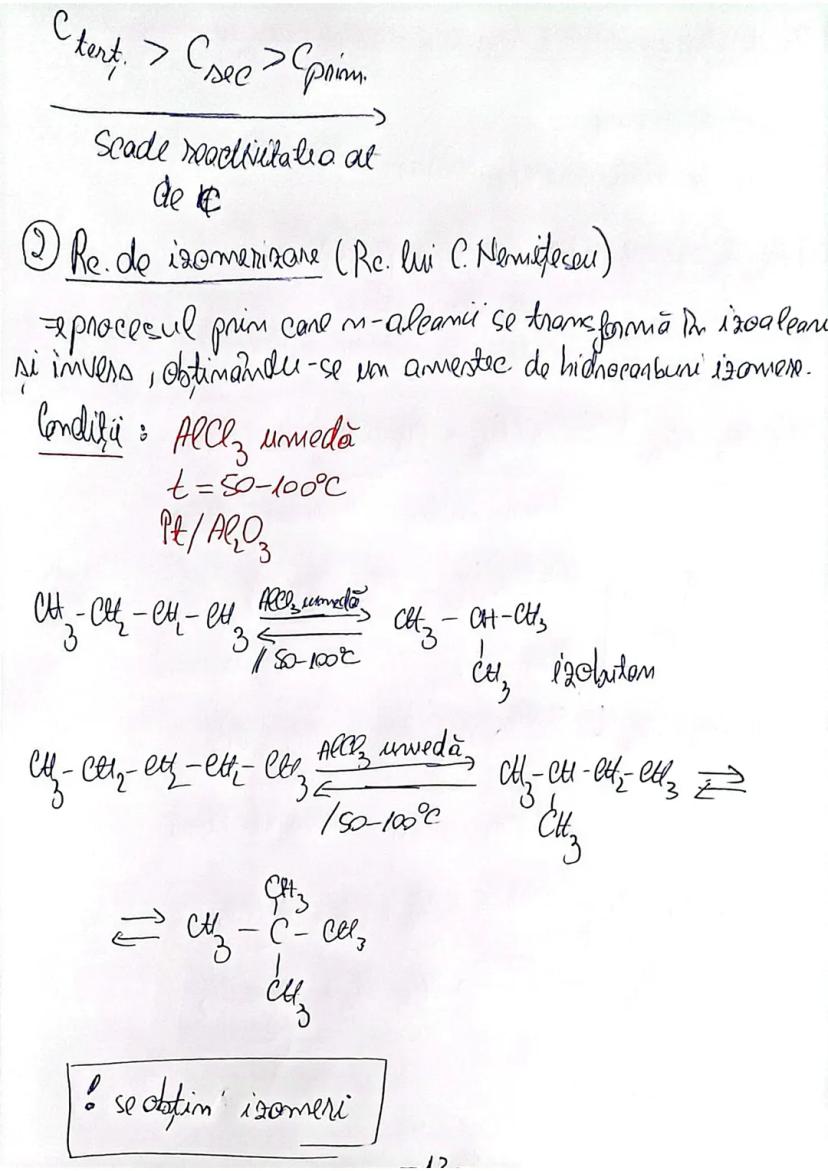 C terț. > C sec > C prim.
scade reactivitatea at
de C
② Rc. de izomerizare (Rc. lui C. Nenițescu)
= procesul prin care n-alcanii se transformă în izoalcani
și invers, obținându-se un amestec de hidrocarburi izomere.
Condiții: AlCl3 umedă
t = 50-100°C
Pt/Al2O3
CH3-CH2-CH2-CH3 ⇌ CH3-CH-CH3
AlCl3 umedă
/50-100°C
CH3 izobutan
CH3-CH2-CH2-CH2-CH3 ⇌ CH3-CH-CH2-CH3 ⇌
AlCl3 umedă
/50-100°C
CH3
CH3
⇌ CH3-C-CH3
CH3
! se obțin izomeri